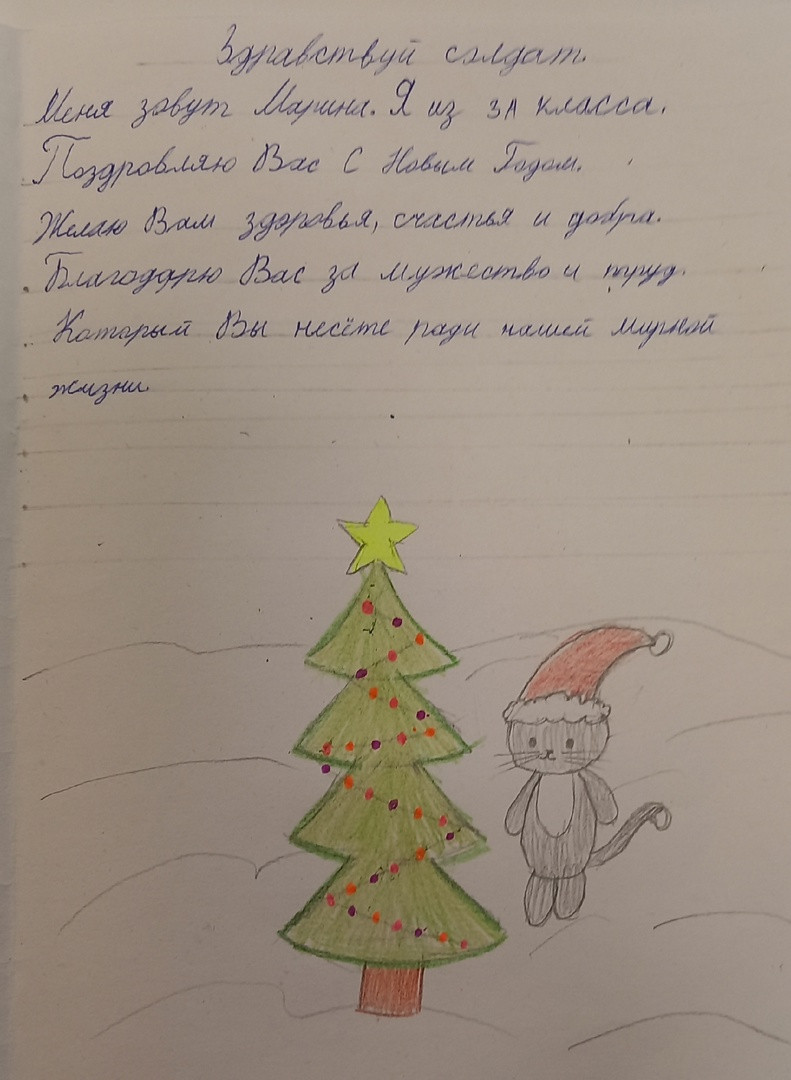 Здравствуй солдат.
Меня зовут Марина. Я из 3А класса.
Поздровляю Вас С Новым Годом.
Желаю Вам здоровья, счастья и добра.
Благодарю Вас за мужество и труд.
Который Вы несёте ради нашей мирной
жизни.